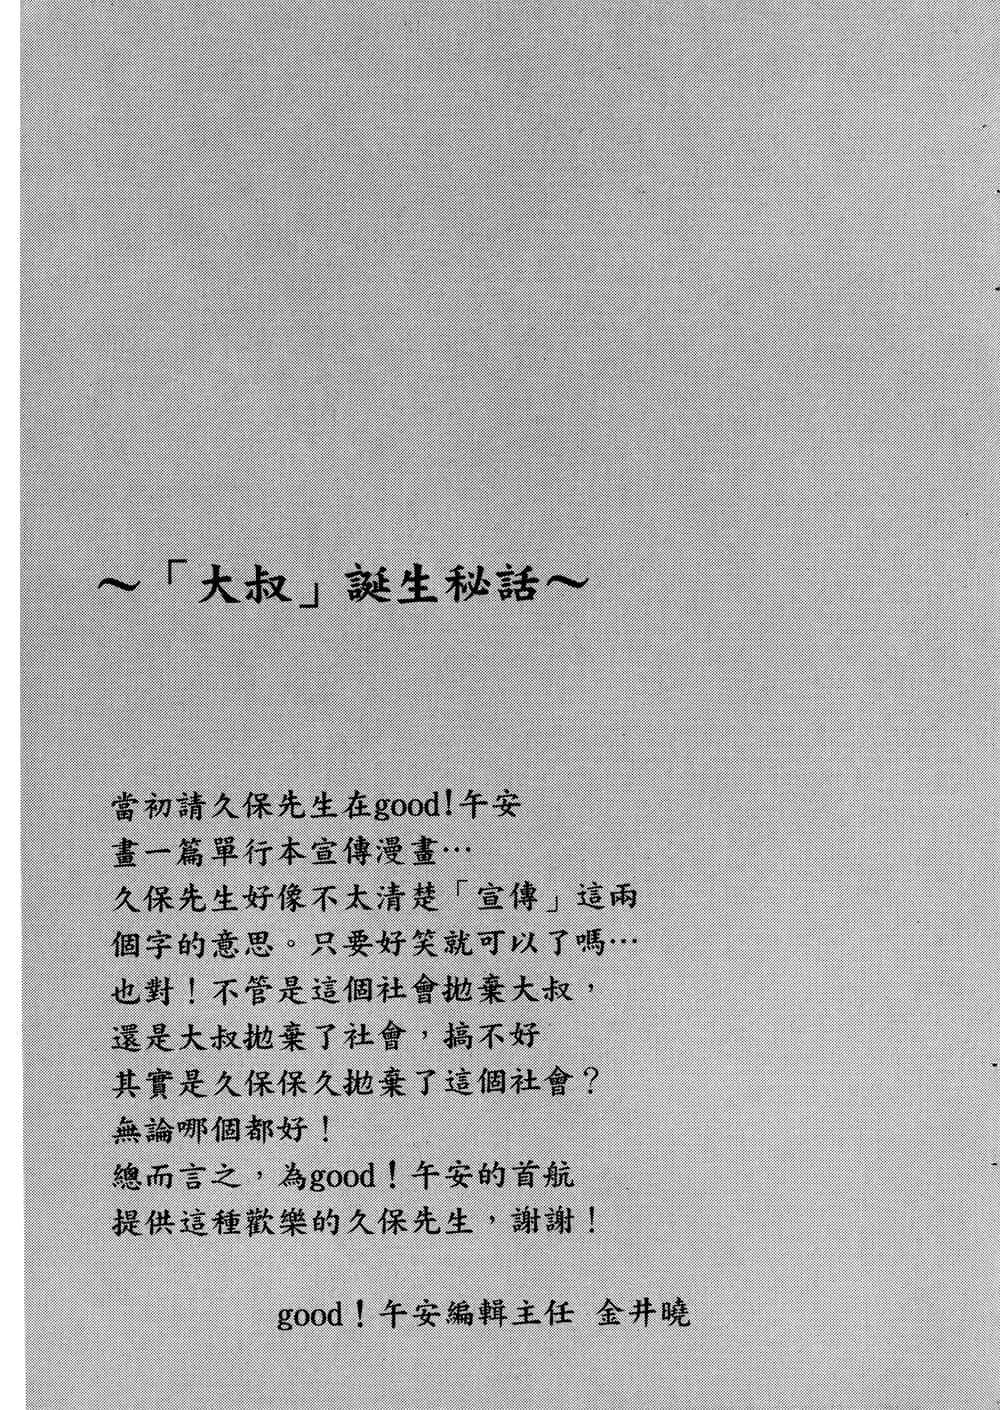 ～「大叔」誕生秘話～
當初請久保先生在good!午安
畫一篇單行本宣傳漫畫…
久保先生好像不太清楚「宣傳」這兩
個字的意思。只要好笑就可以了嗎…
也對！不管是這個社會拋棄大叔，
還是大叔拋棄了社會，搞不好
其實是久保保久拋棄了這個社會？
無論哪個都好！
總而言之，為good！午安的首航
提供這種歡樂的久保先生，謝謝！
good！午安編輯主任 金井曉